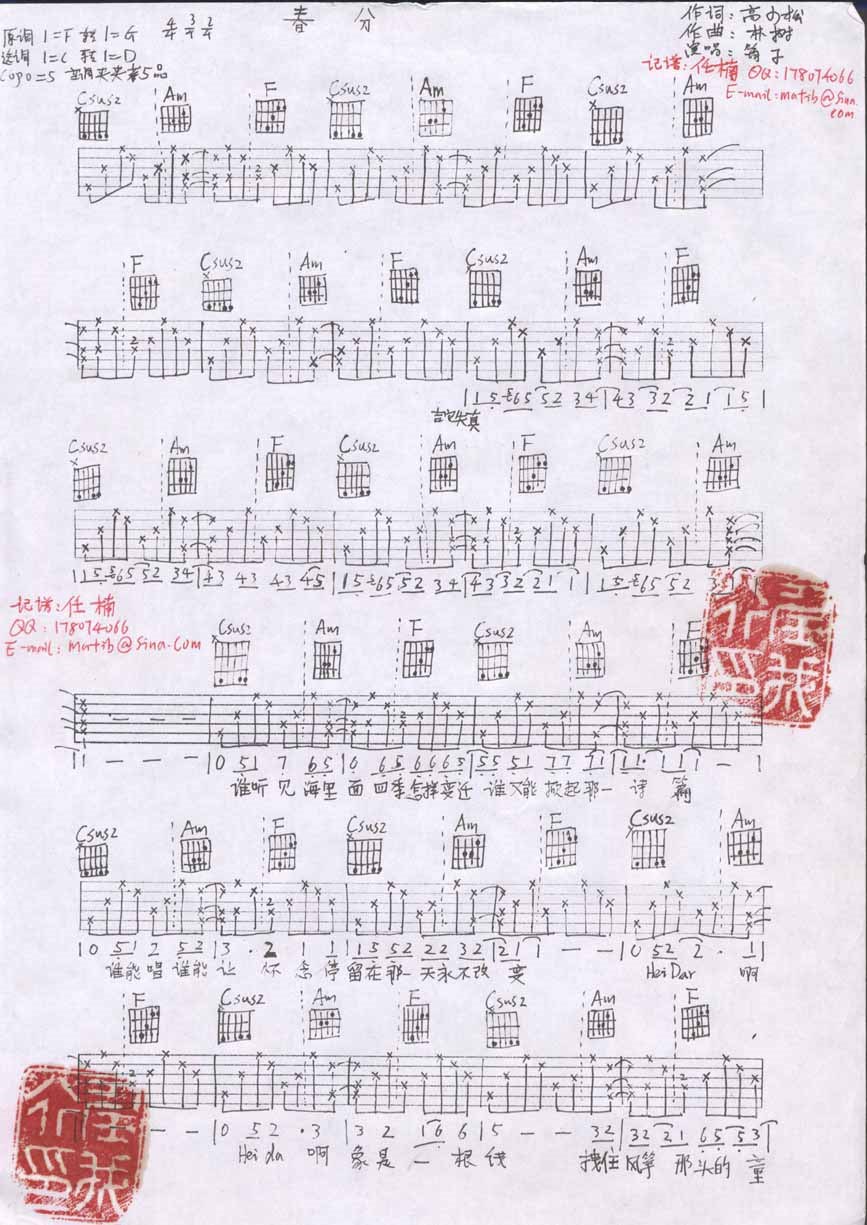 春分
原调 1=F 转 1=G 4/4 3/4 2/4
选调 1=C 转 1=D
Capo=5 变调夹夹第5品
作词:高小松
作曲:朴树
演唱:筠子
记谱:任楠 QQ:178074066
E-mail:matib@sina.com
Csus2 Am F Csus2 Am F Csus2 Am
F Csus2 Am F Csus2 Am F
|1 5 ·5 65 52 34|43 32 21 15|
Csus2 Am F Csus2 Am F Csus2 Am
|15 ·5 65 52 34|43 43 43 45|15 ·5 65 52 34|43 32 21 1|15 ·5 65 52
记谱:任楠
QQ:178074066
E-mail:matib@sina.com
Csus2 Am F Csus2 Am F
|1 - - -|0 51 7 65|0 65 666 5|55 51 77 71|11· 1 1 1|
谁听见海里面四季怎样变迁 谁又能掀起那一诗篇
Csus2 Am F Csus2 Am F Csus2 Am
|0 51 2 52|3· 2 1 1|15 52 22 32|21 1 - -|0 52 2· 1|
谁能唱谁能让怀念停留在那一天永不改变 Hei Dar 啊
F Csus2 Am F Csus2 Am F
|1 - - -|0 52 ·3|3 2 16 6|5 - - 32|32 21 65 53|
Hei da 啊 象是一根线 拽住风筝那头的童